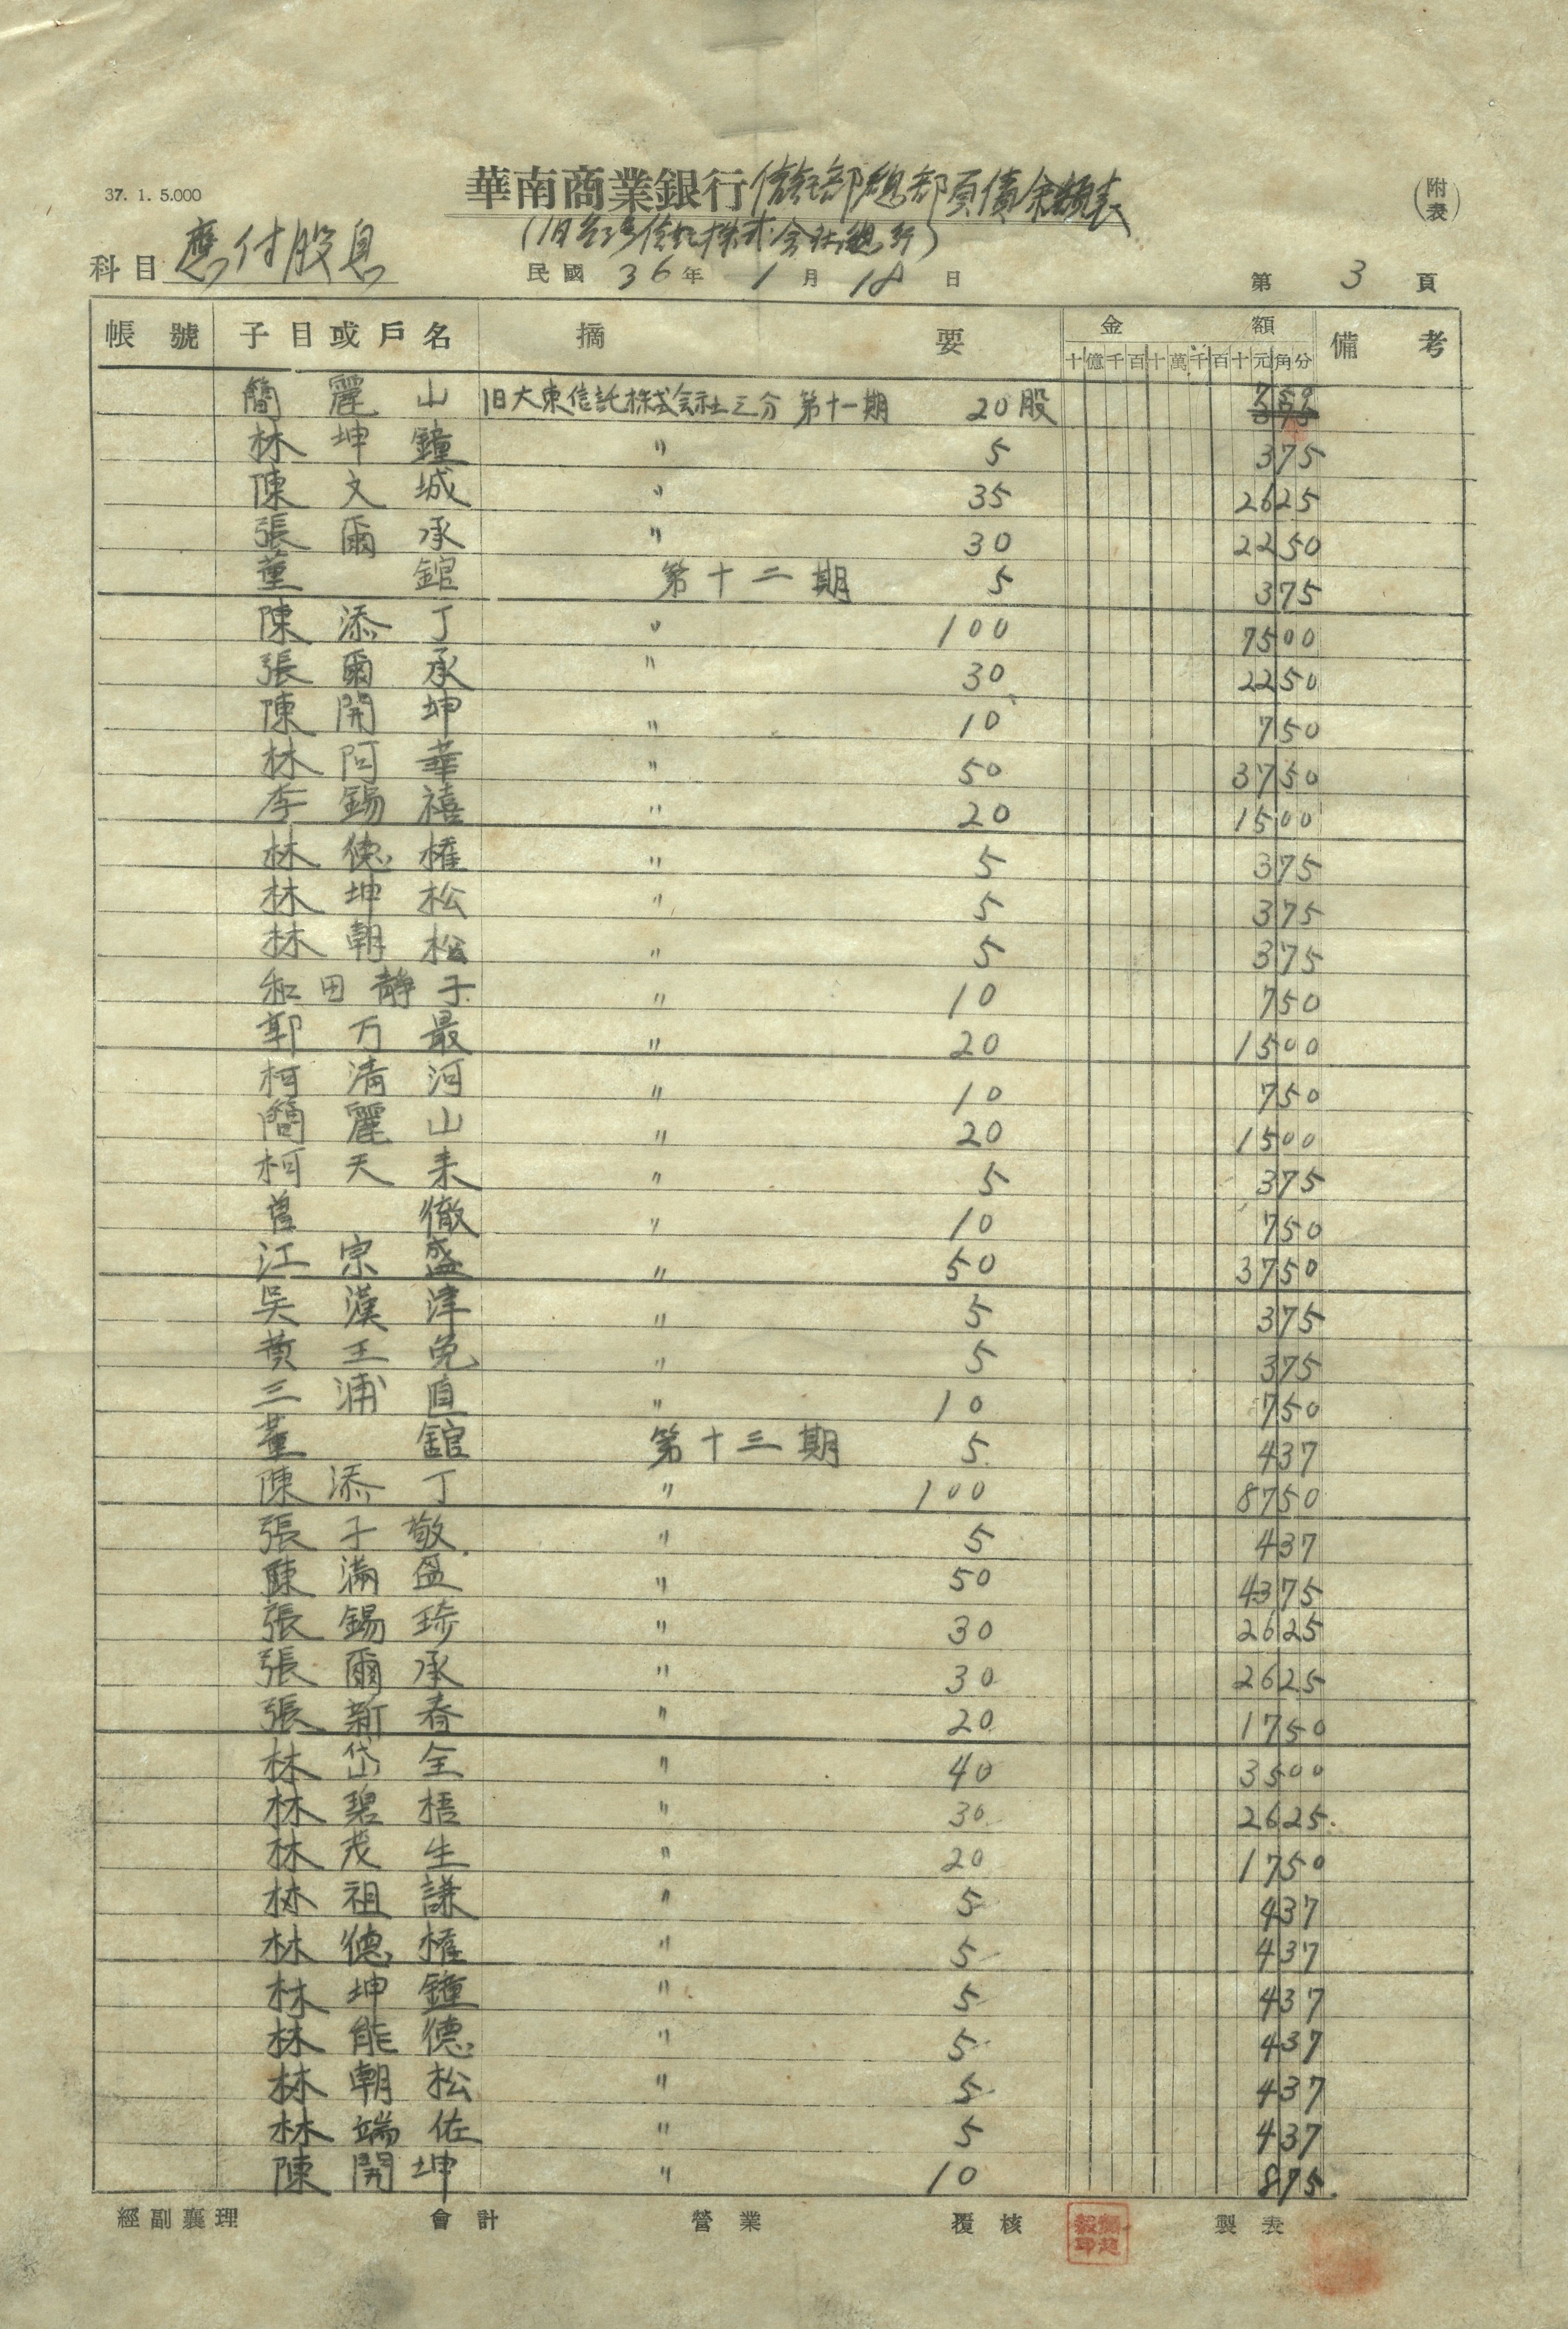 37. 1. 5.000
華南商業銀行信託部總部負債余額表
(旧台湾信託株式会社總行)
(附表)
科目 應付股息
民國 36 年 1 月 18 日
第 3 頁
帳號 子目或戶名 摘要 金額 備考
十億千百十萬千百十元角分
簡麗山 旧大東信託株式会社之分 第十一期 20股 1500
林坤鐘 〃 5 375
陳文城 〃 35 2625
張爾承 〃 30 2250
董錧 第十二期 5 375
陳添丁 〃 100 7500
張爾承 〃 30 2250
陳開坤 〃 10 750
林阿華 〃 50 3750
李錫禧 〃 20 1500
林德權 〃 5 375
林坤松 〃 5 375
林朝松 〃 5 375
和田静子 〃 10 750
郭万最 〃 20 1500
柯清河 〃 10 750
簡麗山 〃 20 1500
柯天来 〃 5 375
曾徹 〃 10 750
江宗盛 〃 50 3750
吳漢津 〃 5 375
黄王免 〃 5 375
三浦直 〃 10 750
董錧 第十三期 5 437
陳添丁 〃 100 8750
張子敬 〃 5 437
陳滿盈 〃 50 4375
張錫琦 〃 30 2625
張爾承 〃 30 2625
張新春 〃 20 1750
林岱全 〃 40 3500
林碧梧 〃 30 2625
林茂生 〃 20 1750
林祖謙 〃 5 437
林德權 〃 5 437
林坤鐘 〃 5 437
林能德 〃 5 437
林朝松 〃 5 437
林端佐 〃 5 437
陳開坤 〃 10 875
經副襄理 會計 營業 覆核 製表